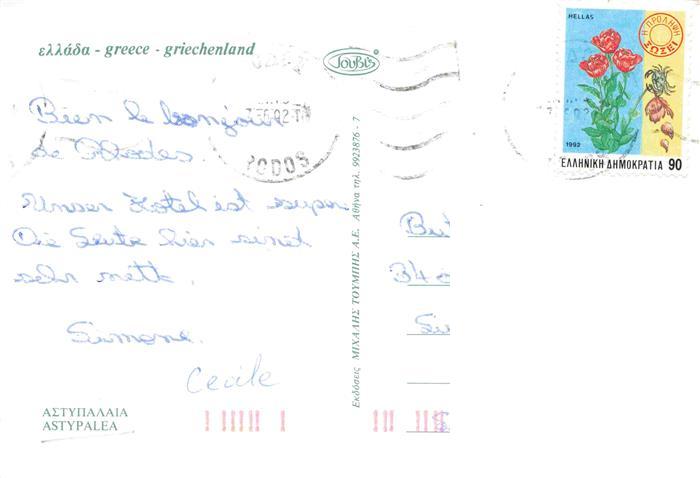 ελλάδα - greece - griechenland
HELLAS
Η ΠΡΟΛΗΨΗ
ΣΩΖΕΙ
1992
ΕΛΛΗΝΙΚΗ ΔΗΜΟΚΡΑΤΙΑ 90
ΡΟΔΟΣ
Bien le bonjour
de Rhodes.
Unser Hotel ist super
Die Leute hier sind
sehr nett.
Simone.
Cecile
Εκδόσεις ΜΙΧΑΛΗΣ ΤΟΥΜΠΗΣ Α.Ε. Αθήνα τηλ. 9923876 - 7
34
ΑΣΤΥΠΑΛΑΙΑ
ASTYPALEA